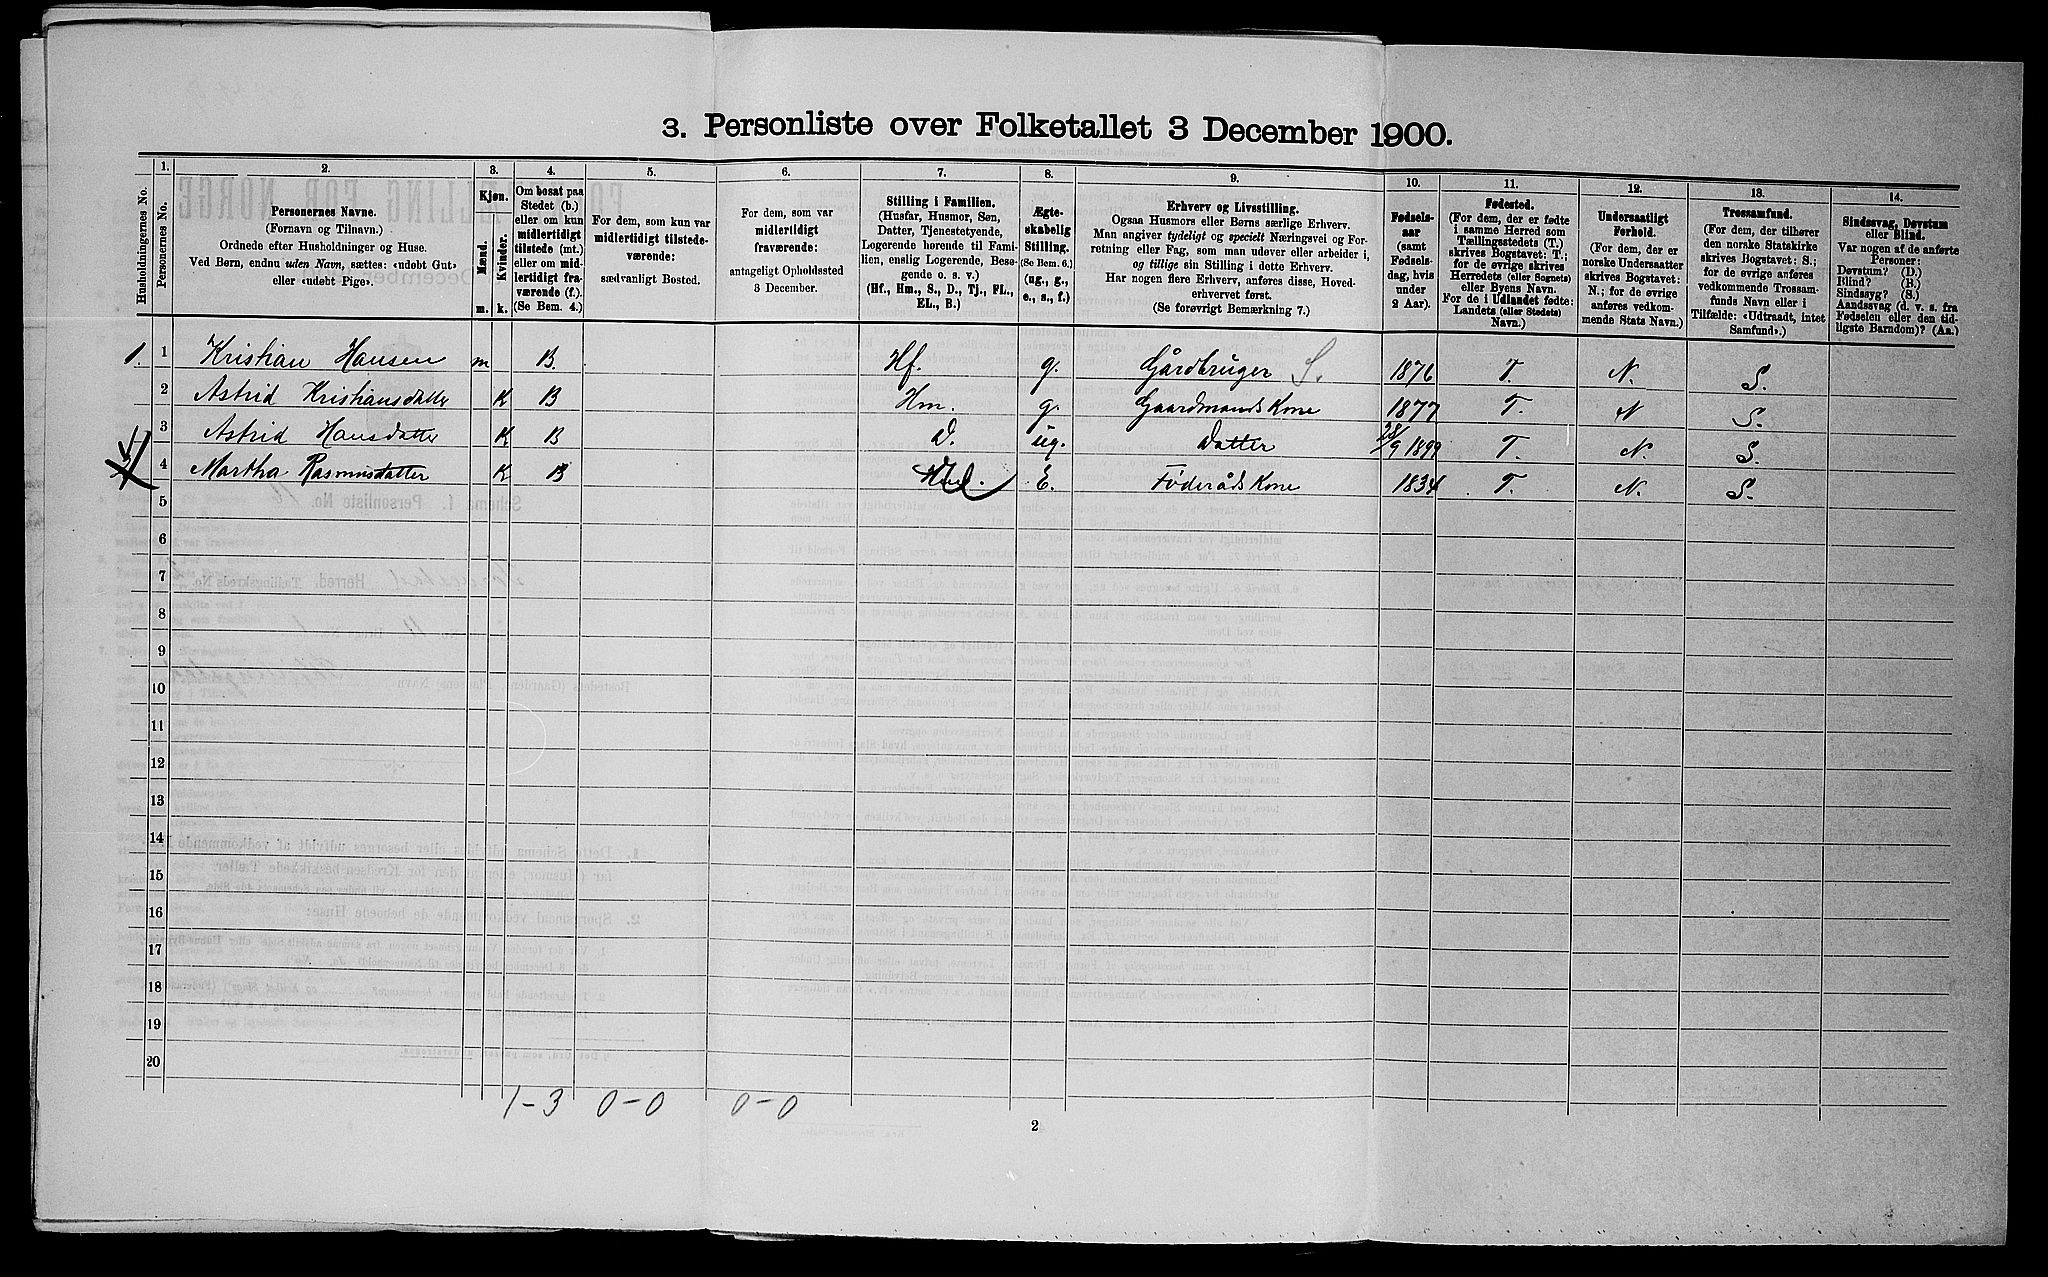 3. Personliste over Folketallet 3 December 1900.
1. 2. 3. 4. 5. 6. 7. 8. 9. 10. 11. 12. 13. 14.
Husholdningernes No.
Personernes No.
Personernes Navne.
(Fornavn og Tilnavn.)
Ordnede efter Husholdninger og Huse.
Ved Børn, endnu uden Navn, sættes: «udøbt Gut»
eller «udøbt Pige».
Kjøn.
Mænd.
Kvinder.
m. k.
Om bosat paa
Stedet (b.)
eller om kun
midlertidigt
tilstede (mt.)
eller om mid-
lertidigt fra-
værende (f.).
(Se Bem. 4.)
For dem, som kun var
midlertidigt tilstede-
værende:
sædvanligt Bosted.
For dem, som var
midlertidigt
fraværende:
antageligt Opholdssted
3 December.
Stilling i Familien.
(Husfar, Husmor, Søn,
Datter, Tjenestetyende,
Logerende hørende til Fami-
lien, enslig Logerende, Besø-
gende o. s. v.)
(Hf., Hm., S., D., Tj., FL.,
EL., B.)
Ægte-
skabelig
Stilling.
(Se Bem. 6.)
(ug., g.,
e., s., f.)
Erhverv og Livsstilling.
Ogsaa Husmors eller Børns særlige Erhverv.
Man angiver tydeligt og specielt Næringsvei og For-
retning eller Fag, som man udøver eller arbeider i,
og tillige sin Stilling i dette Erhverv.
Har nogen flere Erhverv, anføres disse, Hoved-
erhvervet først.
(Se forøvrigt Bemærkning 7.)
Fødsels-
aar
(samt
Fødsels-
dag, hvis
under
2 Aar).
Fødested.
(For dem, der er fødte
i samme Herred som
Tællingsstedets (T.)
skrives Bogstavet: T.;
for de øvrige skrives
Herredets (eller Sognets)
eller Byens Navn.
For de i Udlandet fødte:
Landets (eller Stedets)
Navn.)
Undersaatligt
Forhold.
(For dem, der er
norske Undersaatter
skrives Bogstavet:
N.; for de øvrige
anføres vedkom-
mende Stats Navn.)
Trossamfund.
(For dem, der tilhører
den norske Statskirke
skrives Bogstavet: S.;
for de øvrige anføres
vedkommende Trossam-
funds Navn eller i
Tilfælde: «Udtraadt, intet
Samfund».)
Sindssvag, Døvstum
eller Blind.
Var nogen af de anførte
Personer:
Døvstum? (D.)
Blind? (B.)
Sindssyg? (S.)
Aandssvag (d. v. s. fra
Fødselen eller den tid-
ligste Barndom)? (Aa.)
1. 1 Kristian Hansen m B. Hf. g. Gårdbruger S. 1876 T. N. S.
2 Astrid Kristiansdatter K B Hm. g. Gaardmandskone 1877 T. N S.
3 Astrid Hansdatter K B D. ug. Datter 28/9 1899 T. N S.
4 Martha Rasmusdatter K B E. Føderådskone 1834 T. N. S.
5
6
7
8
9
10
11
12
13
14
15
16
17
18
19
20
1-3 0-0 0-0
2